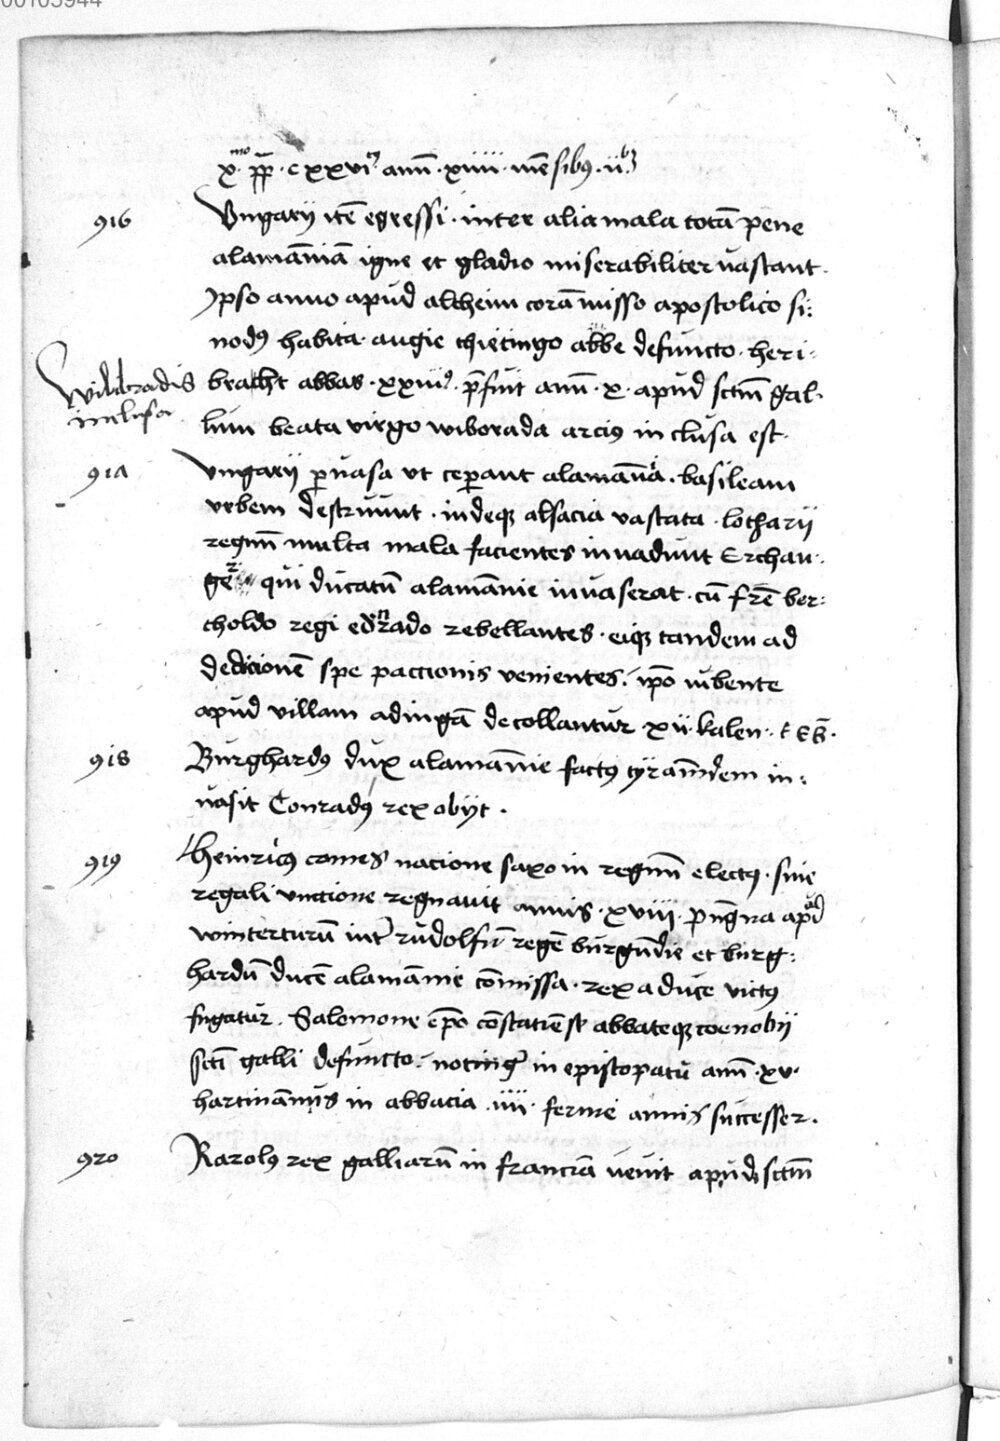 00103944
x^mo pp̄ · cxxvi^9 ann̄ · xiiii · mēsibꝯ · ii^bꝫ
916 Vngarij itē egressi · inter alia mala totā pene
alamāniā igne et gladio miserabiliter uastant ·
Ipso anno apud altheim corā misso apostolico si:
nodꝯ habita · augie thietingo abbe defuncto · heri:
Wildbradis
inclusa
bracht abbas · xxiiiꝯ · p̄fuit ann̄ · x · apud sctm̄ gal:
lum beata virgo wiborada arcius in clusa est ·
917 Vngarij puasa ut ceperant alamāniā · basileam
urbem destruunt · indeqꝫ alsacia vastata · lotharij
regnū multa mala facientes inuadunt Erchan:
ger qui ducatū alamānie inuaserat · cū frē ber:
choldo regi conrado rebellantes · eiqꝫ tandem ad
dedicionē spe paccionis venientes · ip̄o iubente
apud villam adingā decollantur · xii · kalen · feb̄ ·
918 Burghardꝯ dux alamānie factꝯ tyrannidem in:
uasit Conradꝯ rex obijt ·
919 Heinricꝯ comes nacione saxo in regnū electꝯ · sine
regali vnctione regnauit annis · xviii · pugna apud
winterturū int̄ rudolfū regē burgūdie et burg:
hardū ducē alamānie cōmissa · rex a duce victꝯ
fugatur · Salomone ep̄o cōstatiēsi abbateqꝫ coenobij
scti galli defuncto · notinḡ in epistopatū ann̄ · xv ·
hartmānus in abbacia · iiii · ferme annis successer ·
920 Karolꝯ rex galliarū in franciā uenit apud sctm̄